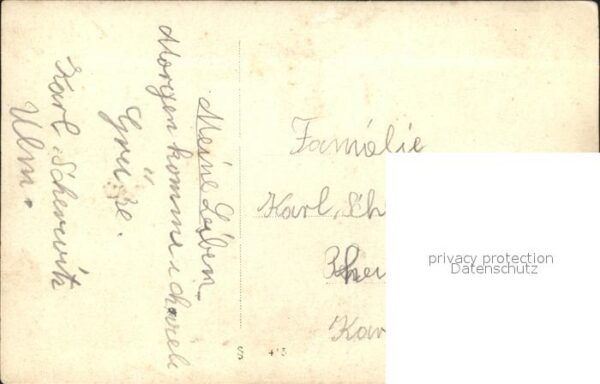 Meine Lieben.
Morgen komme ich viele
Grüße.
Karl Scherwit
Ulm.
Familie
Karl, Sch
Rhei
Kar
privacy protection
Datenschutz